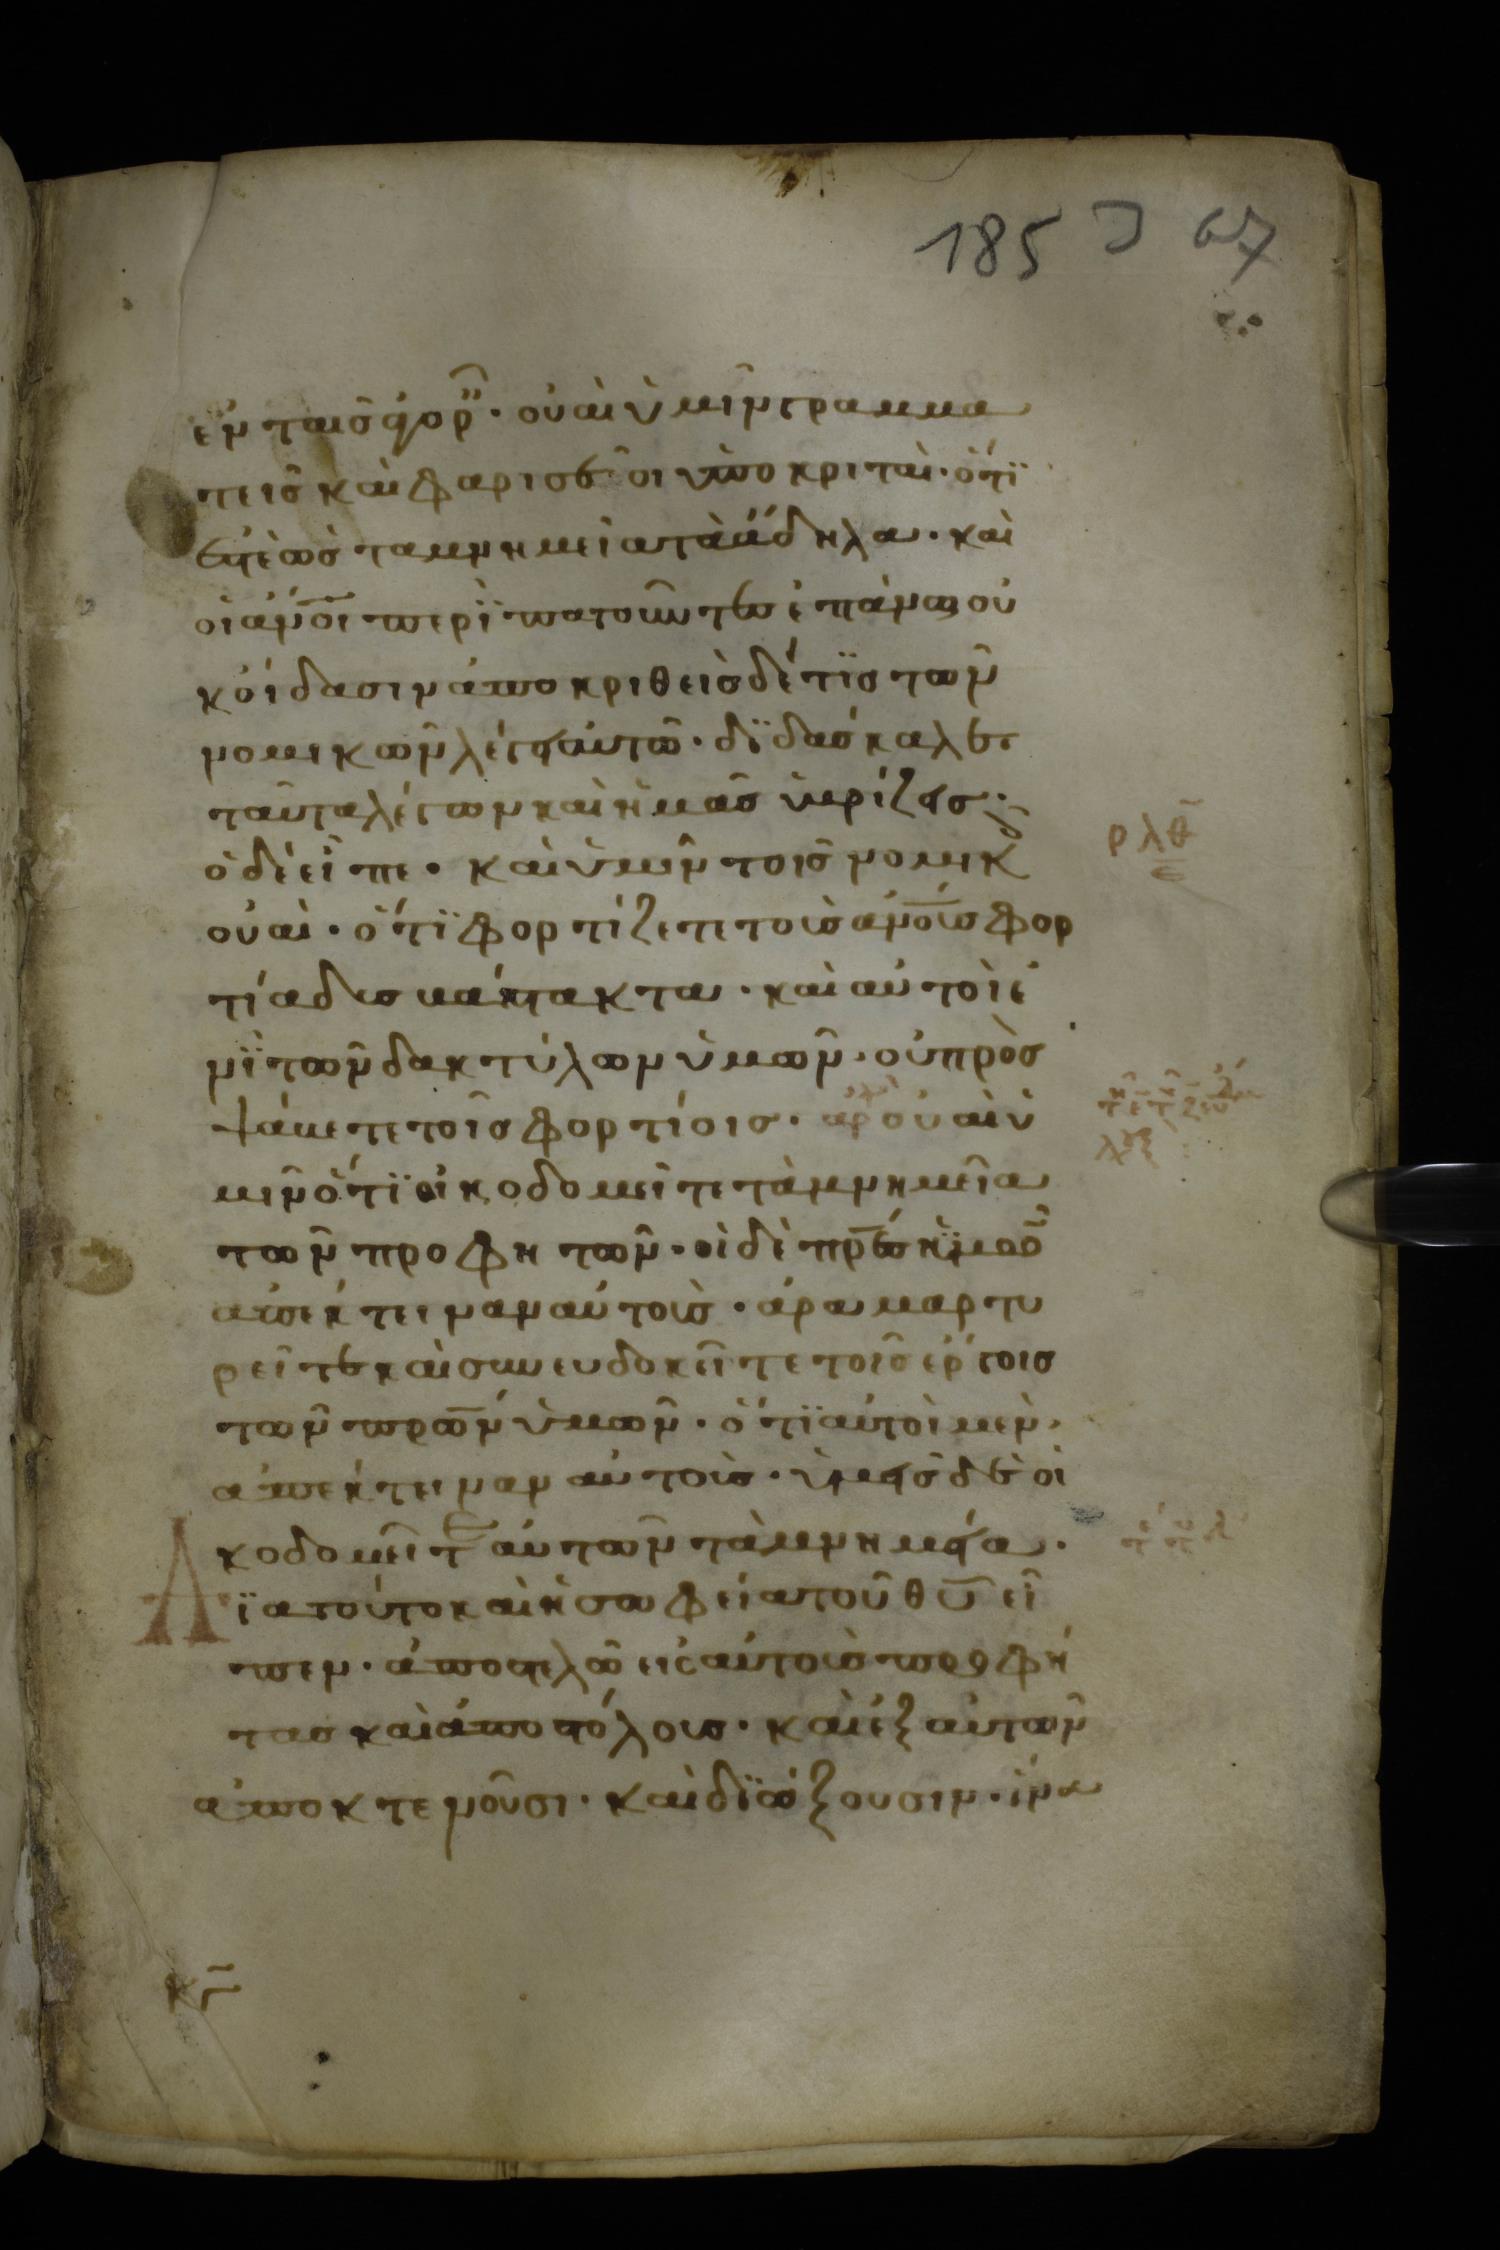 185 67
ἐν ταῖς ἀγορ. οὐαὶ ὑμῖν γραμμα
τεῖς καὶ φαρισαῖοι ὑποκριταί. ὅτϊ
ἐστὲ ὡς τα μνημεῖα τὰ ἄδηλα. καὶ
οἱ ἄνοι περϊπατοῦντες ἐπάνω οὐ
κ οἴδασιν ἀποκριθεὶς δέ τϊς τῶν
νομικῶν λέγει αὐτῶ. δϊδάσκαλε
ταῦτα λέγων καὶ ἡμᾶς ὑβρίζεις.
ὁ δὲ εἶπε. καὶ ὑμῖν τοῖς νομικ
οὐαί. ὅτϊ φορτίζετε τοὺς ἀνους φορ
τία δυσβάστακτα. καὶ αὐτοὶ ἑ
νῒ τῶν δακτύλων ὑμῶν. οὐ προσ
ψαύετε τοῖς φορτίοις. αρ οὐαὶ ὑ
μῖν ὅτϊ οἰκοδομεῖτε τὰ μνημεῖα
τῶν προφητῶν. οἱ δὲ πρες ὑμῶν
ἀπέκτειναν αὐτούς. ἄρα μαρτυ
ρεῖτε καὶ συνευδοκεῖτε τοῖς ἔργοις
τῶν πρων ὑμῶν. ὅτϊ αὐτοὶ μὲν
ἀπέκτειναν αὐτούς. ὑμεῖς δὲ οἰ
κοδομεῖτ αὐτῶν τὰ μνημεῖα.
Δϊα τοῦτο καὶ ἡ σοφεία τοῦ θυ εἶ
πεν. ἀποστελῶ εἰς αὐτοὺς προφή
τας καὶ ἀποστόλους. καὶ ἐξ αὐτῶν
ἀποκτενοῦσι. καὶ δϊώξουσιν. ἵνα
ρλθ
ε